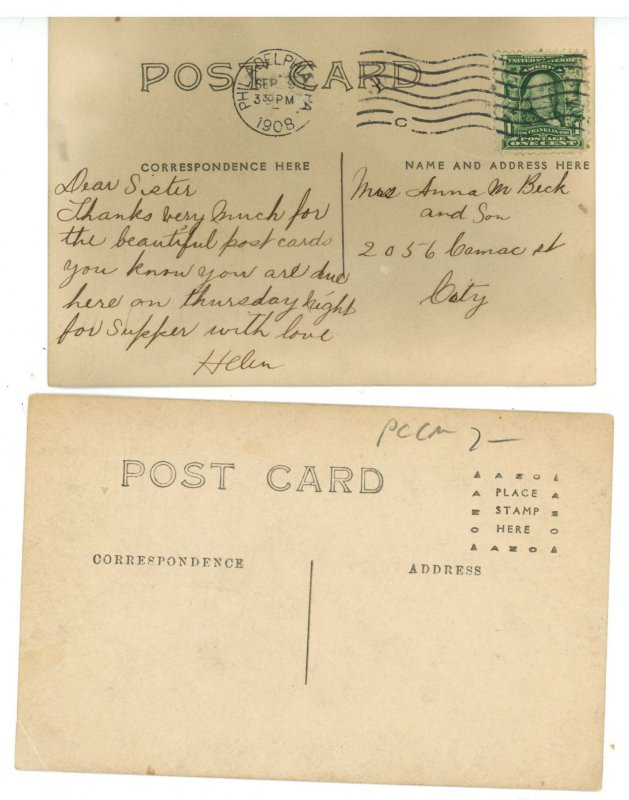 POST CARD
PHILADELPHIA, PA.
SEP 9
3 30 PM
1908
C
UNITED STATES OF AMERICA
FRANKLIN
POSTAGE
ONE CENT
CORRESPONDENCE HERE
NAME AND ADDRESS HERE
Dear Sister
Thanks very Much for
the beautiful post cards
you know you are due
here on thursday Night
for Supper with love
Helen
Mrs Anna M Beck
and Son
2056 Camac st
City
POST CARD
CORRESPONDENCE
ADDRESS
AZO
PLACE
STAMP
HERE
AZO